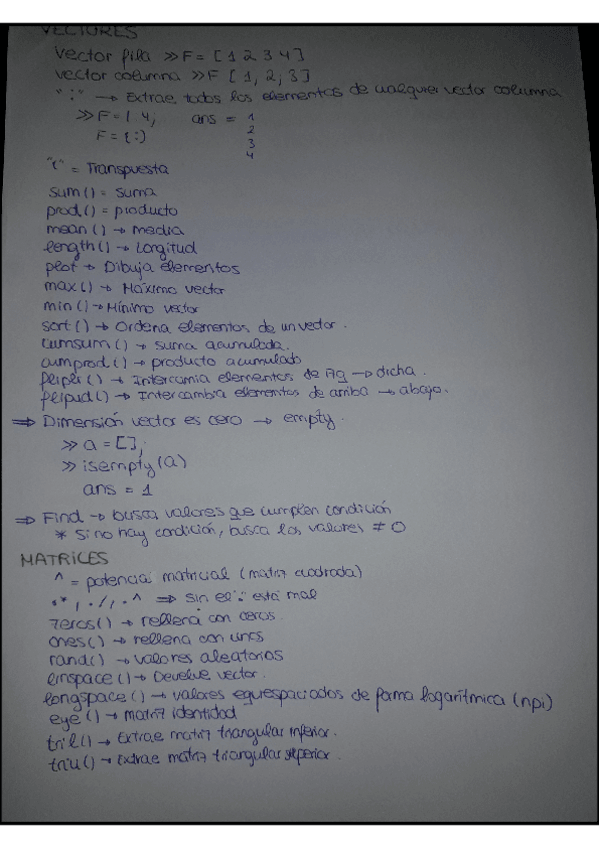 VECTORES
Vector fila >> F = [1 2 3 4]
vector columna >> F [1, 2; 3]
":" → Extrae todos los elementos de cualquier vector columna
>> F = 1 4; ans = 1
F = (:) 2
3
4
"(" = Transpuesta
sum() = suma
prod() = producto
mean() → media
length() → Longitud
plot → Dibuja elementos
max() → Máximo vector
min() → Mínimo vector
sort() → Ordena elementos de un vector.
cumsum() → suma acumulada.
cumprod() → producto acumulado
() → Intercamia elementos de → dicha.
() → Intercambia elementos de arriba → abajo.
⇒ Dimensión vector es cero → empty.
>> a = [];
>> isempty(a)
ans = 1
⇒ Find → busca valores que cumplen condición
* Si no hay condición, busca los valores ≠ 0
MATRICES
^ = potencia matricial (matriz cuadrada)
.*, ./, .^ ⇒ sin el "." está mal
zeros() → rellena con ceros.
ones() → rellena con unos
rand() → valores aleatorios
linspace() → Devuelve vector.
longspace() → valores equespaciados de forma logarítmica (npi)
eye() → matriz identidad
tril() → Extrae matriz triangular inferior.
triu() → Extrae matriz triangular superior.